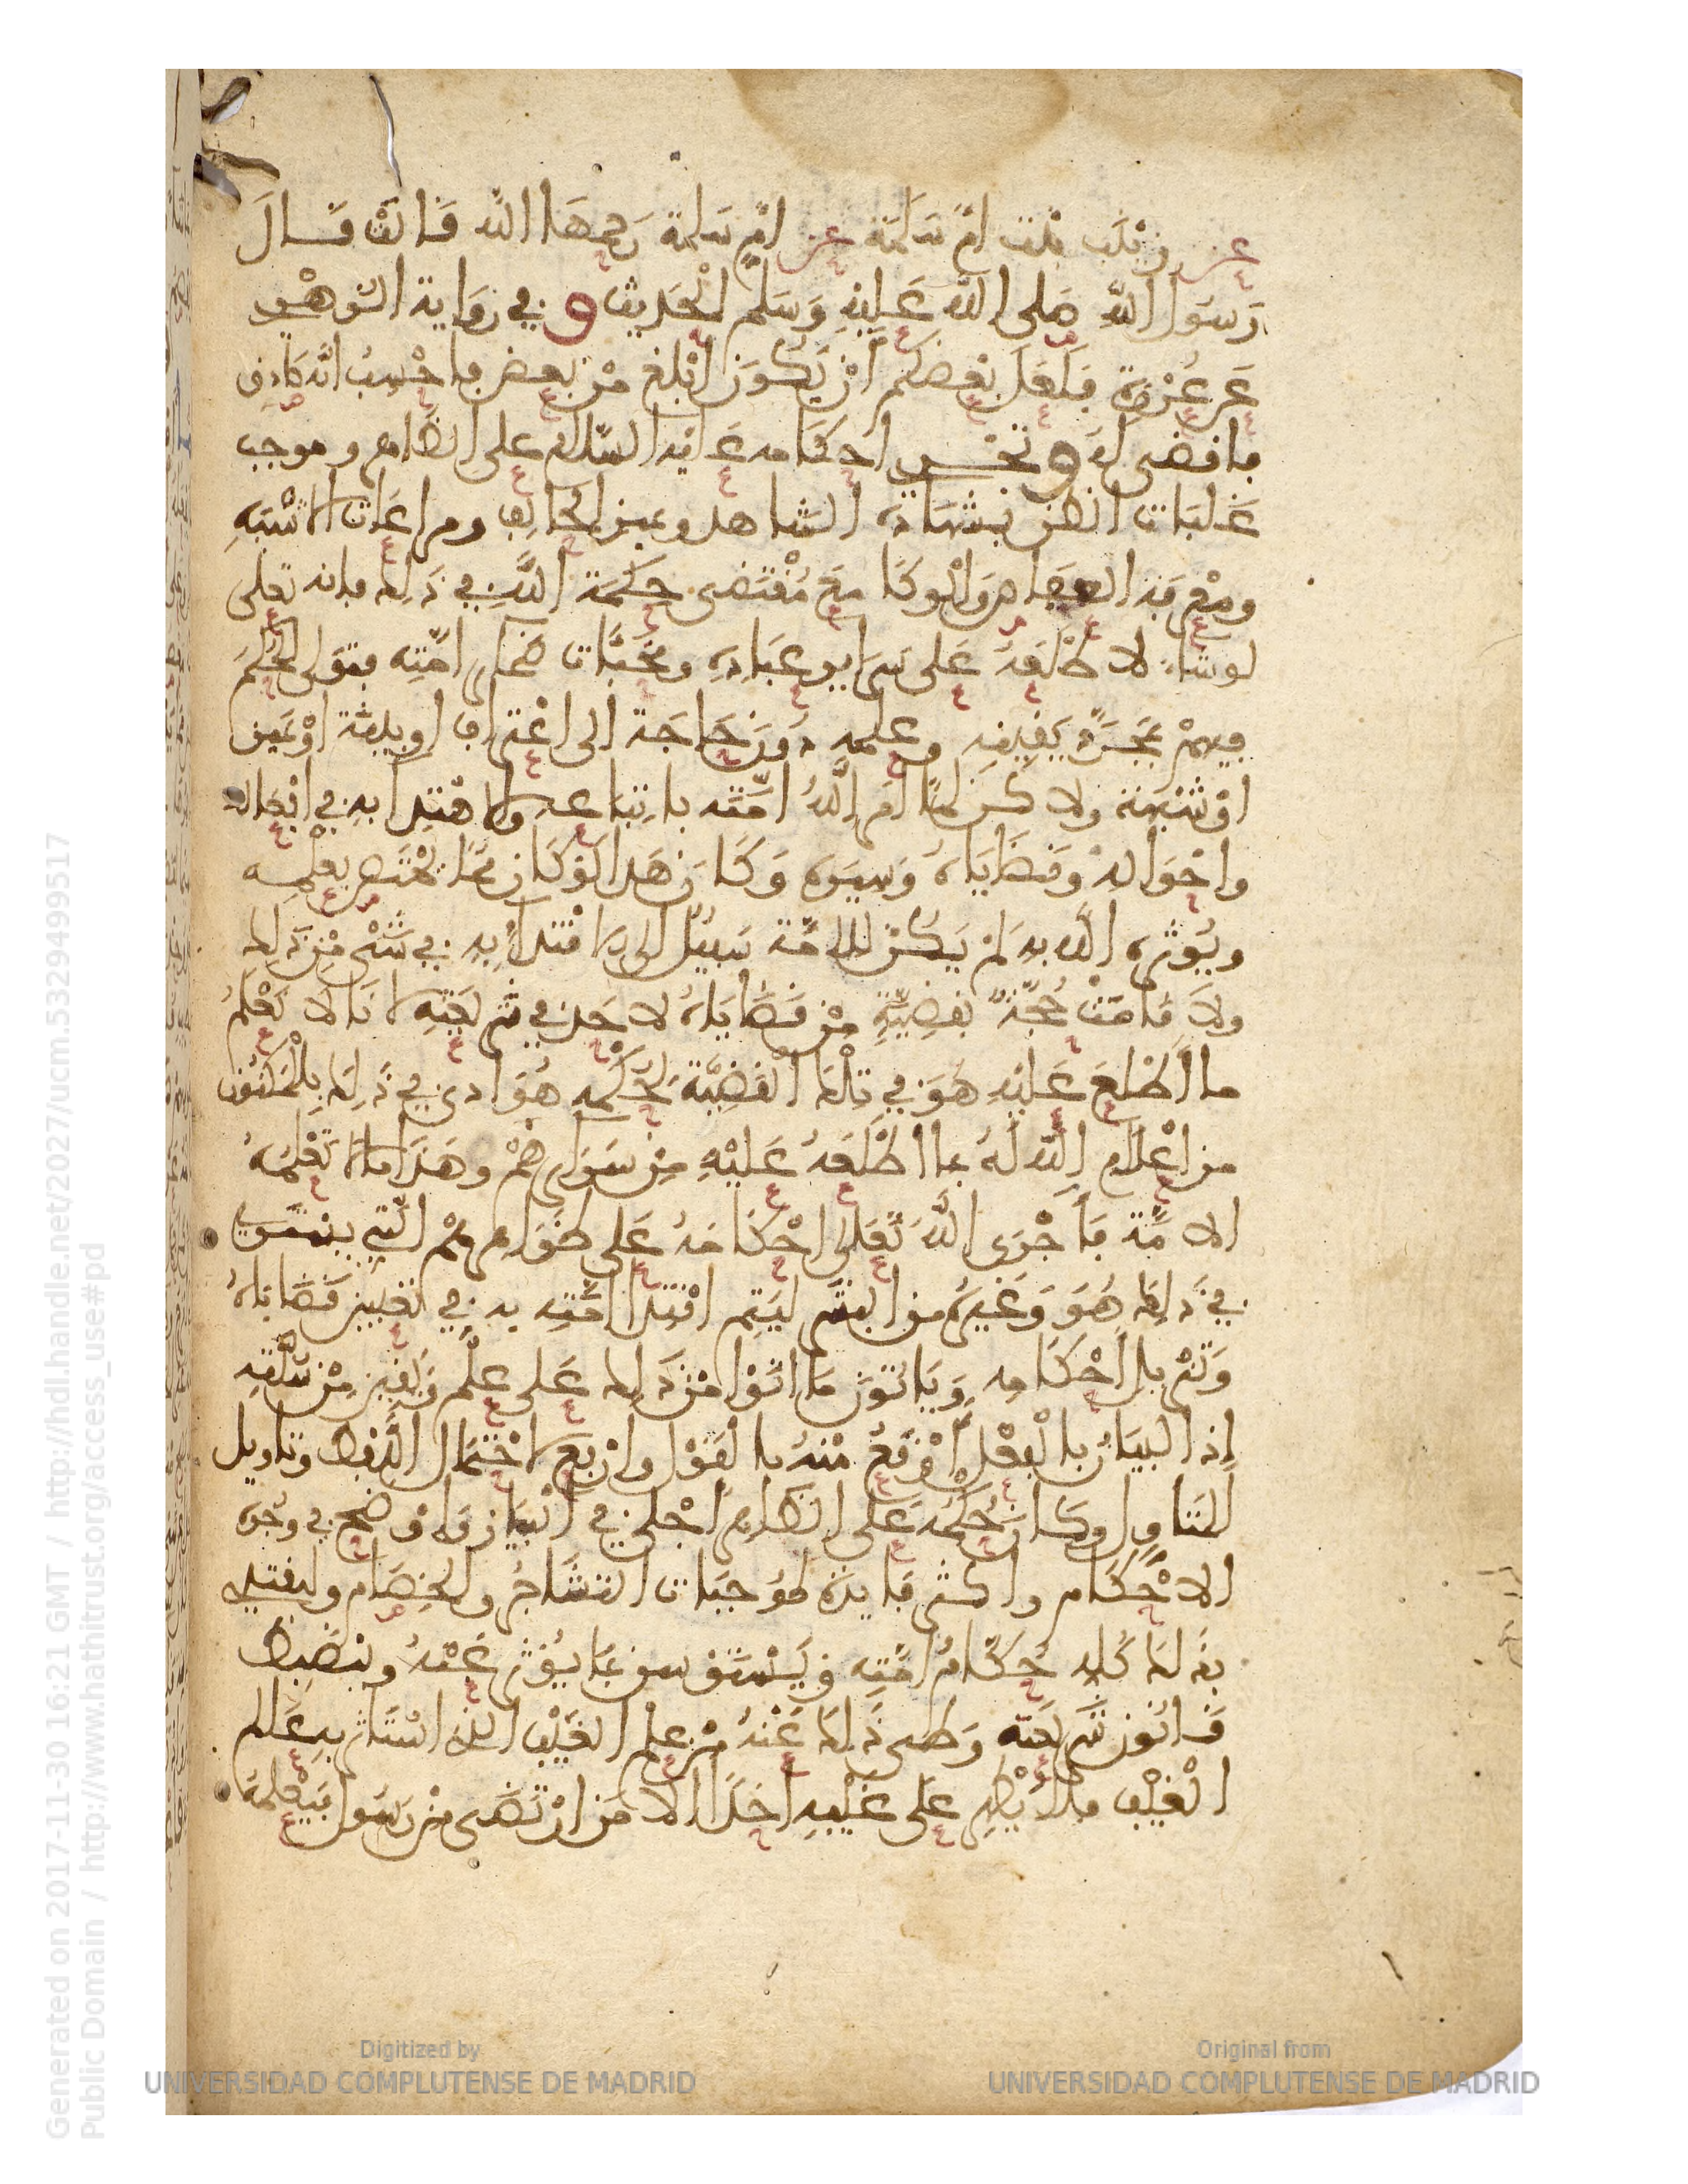 عن زينب بنت ام سلمة عن ام سلمة رحمها الله قالت قال
رسول الله صلى الله عليه وسلم الحديث و في رواية الزهري
عن عروة فلعل بعضكم ان يكون ابلغ من بعض فاحسب انه صادق
فاقضي له و تجري احكامه عليه السلام على الظاهر وموجب
غلبات الظن بشهادة الشاهد ويمين الحالف ومراعات الاشبه
ومعرفة العفاص والوكا مع مقتضى حكمة الله في ذلك فانه تعلى
لو شاء لاطلعه على سراير عباده ومخبات ضماير امته فتولى الحكم
بينهم بمجرد يقينه وعلمه دون حاجة الى اعتراف او بينة او يمين
او شبهة ولاكن لما امر الله امته باتباعه والاقتدا به في افعاله
واحواله وقضاياه وسيره وكان هذا لو كان مما يختص بعلمه
ويوثره الله به لم يكن للامة سبيل الى الاقتدا به في شيء من ذلك
ولا قامت حجة بقضية من قضاياه لاحد في شريعته لانا لا نعلم
ما اطلع عليه هو في تلك القضية بحكمه هو اذا في ذلك بالمكنون
من اعلام الله له بما اطلعه عليه من سرايرهم وهذا ما لا تعلمه
الامة فاجرى الله تعلى احكامه على ظواهرهم التي يستوي
في ذلك هو وغيره من البشر ليتم اقتدا امته به في تعيين قضاياه
وتنزيل احكامه وياتون ما اتوا من ذلك على علم ويقين من سنته
اذ البيان بالفعل اوقع منه بالقول وارفع لاحتمال اللفظ وتاويل
المتاول وكان حكمه على الظاهر اجلى في البيان واوضح في وجوه
الاحكام واكثر فايدة لموجبات التشاجر والخصام وليقتدي
بذلك كله حكام امته ويستوثق بما يوثر عنه وينضبط
قانون شريعته وطي ذلك عنه من علم الغيب الذي استاثر به عالم
الغيب فلا يظهر على غيبه احدا الا من ارتضى من رسول فيعلمه
Generated on 2017-11-30 16:21 GMT / http://hdl.handle.net/2027/ucm.5329499517
Public Domain / http://www.hathitrust.org/access_use#pd
Digitized by
UNIVERSIDAD COMPLUTENSE DE MADRID
Original from
UNIVERSIDAD COMPLUTENSE DE MADRID